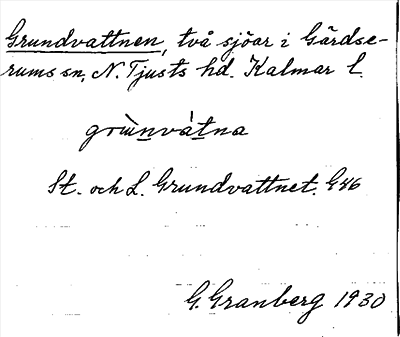 Grundvattnen, två sjöar i Gärdse-
rums sn, N. Tjusts hd. Kalmar l.
grùnvátna
St. och L. Grundvattnet. G46
G. Granberg 1930